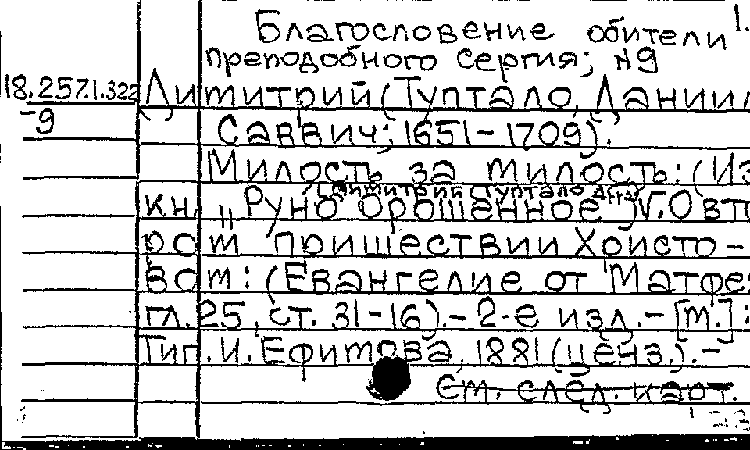 Благословение обители 1.
преподобного Сергия; №9
18.257.1.322
-9
Димитрий (Туптало, Даниил
Саввич; 1651-1709).
Милость за милость: (Из
(Димитрий (Туптало Д.
кн. „Руно орошенное") V. О вто
ром пришествии Христо-
вом: (Евангелие от Матфе
гл. 25, ст. 31-16).- 2-е изд.- [М.]:
Тип. И. Ефимова, 1881 (ценз.).-
См. след. карт.